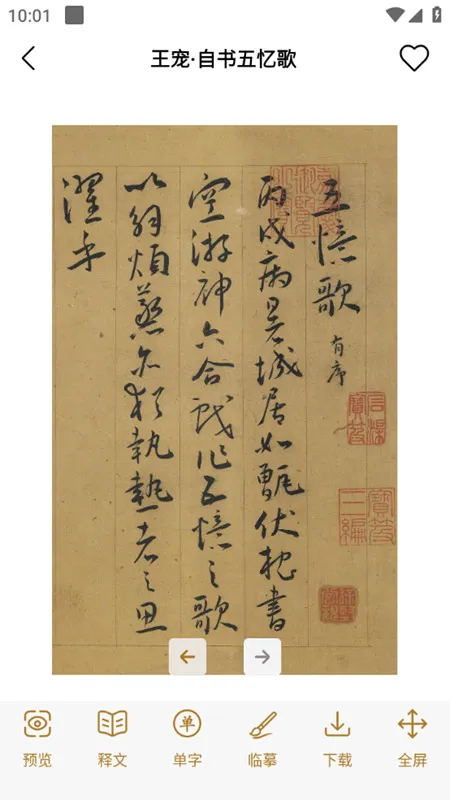 10:01
王宠·自书五忆歌
五憶歌
有序
丙戌病暑城居如甑伏枕書
空游神六合戲作五憶之歌
以解煩蒸亦猶執熱者之思
濯乎
预览
释文
单
单字
临摹
下载
全屏